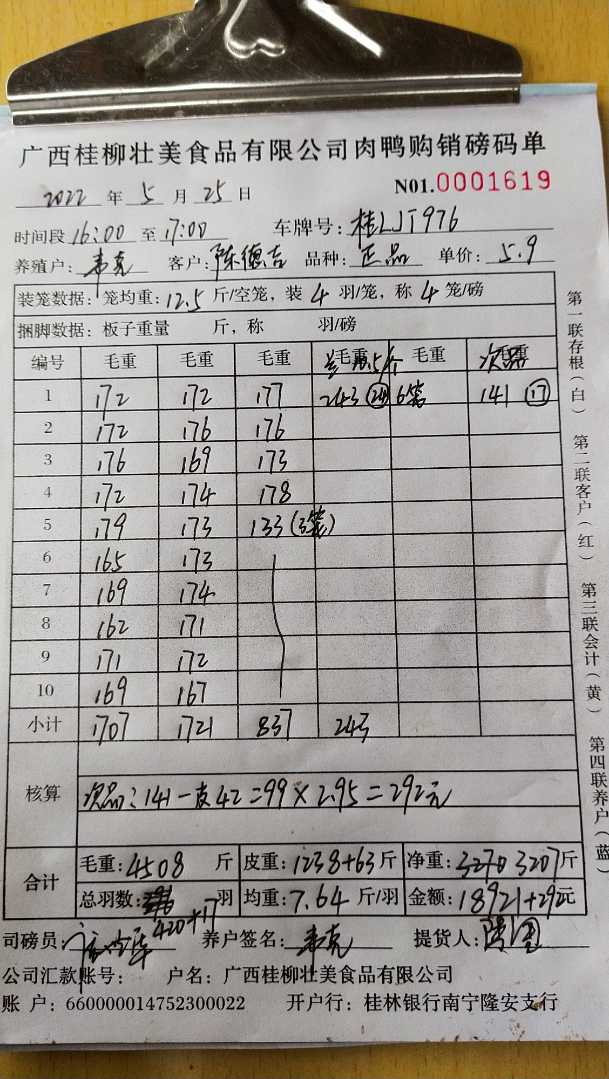 广西桂柳壮美食品有限公司肉鸭购销磅码单
2022 年 5 月 25 日 N01.0001619
时间段 16:00 至 17:00 车牌号: 桂LJT976
养殖户: 韦克 客户: 陈德吉 品种: 正品 单价: 5.9
装笼数据: 笼均重: 12.5 斤/空笼, 装 4 羽/笼, 称 4 笼/磅
捆脚数据: 板子重量 斤, 称 羽/磅
编号 毛重 毛重 毛重 毛重 毛重 次品
1 172 172 177 243 24 6笼 141 17
2 172 176 176
3 176 169 173
4 172 174 178
5 179 173 133 (3笼)
6 165 173
7 169 174
8 162 171
9 171 172
10 169 167
小计 1707 1721 837 243
核算 次品: 141-皮42=99×2.95=292元
合计 毛重: 4508 斤 皮重: 1238+63 斤 净重: 3270 3207 斤
总羽数: 396 羽 均重: 7.64 斤/羽 金额: 18921+292元
420+17
司磅员 养户签名: 韦克 提货人:
公司汇款账号: 户名: 广西桂柳壮美食品有限公司
账 户: 660000014752300022 开户行: 桂林银行南宁隆安支行
第一联存根(白) 第二联客户(红) 第三联会计(黄) 第四联养户(蓝)